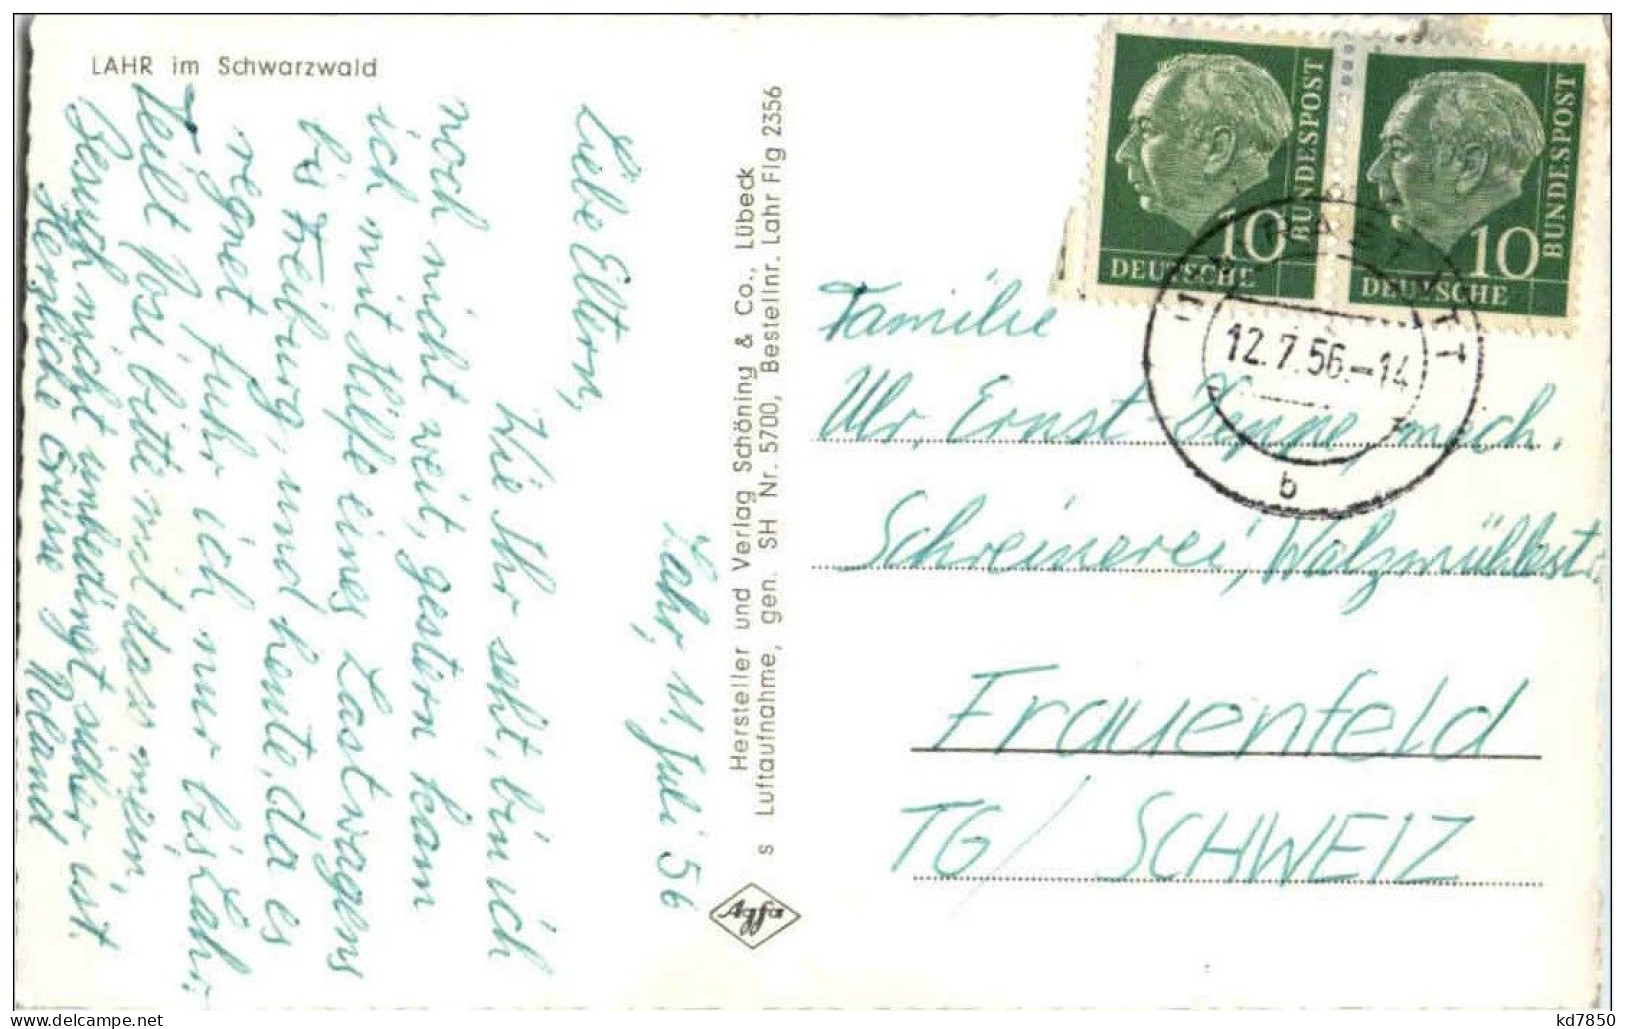 LAHR im Schwarzwald
Lahr, 11. Juli 56
Liebe Eltern,
Wie Ihr seht, bin ich
noch nicht weit, gestern kam
ich mit Hilfe eines Lastwagens
bis Freiburg, und heute, da es
regnet fuhr ich nur bis Lahr.
Teilt Rosi bitte mit dass mein
Besuch nicht unbedingt sicher ist.
Herzliche Grüsse Roland
Hersteller und Verlag Schöning & Co., Lübeck
s Luftaufnahme, gen. SH Nr. 5700, Bestellnr. Lahr Flg 2356
Agfa
10 BUNDESPOST
DEUTSCHE
10 BUNDESPOST
DEUTSCHE
12.7.56.-14
b
Familie
Ulr. Ernst mech.
Schreinerei, Walzmühlestr.
Frauenfeld
TG/ SCHWEIZ
www.delcampe.net
kd7850